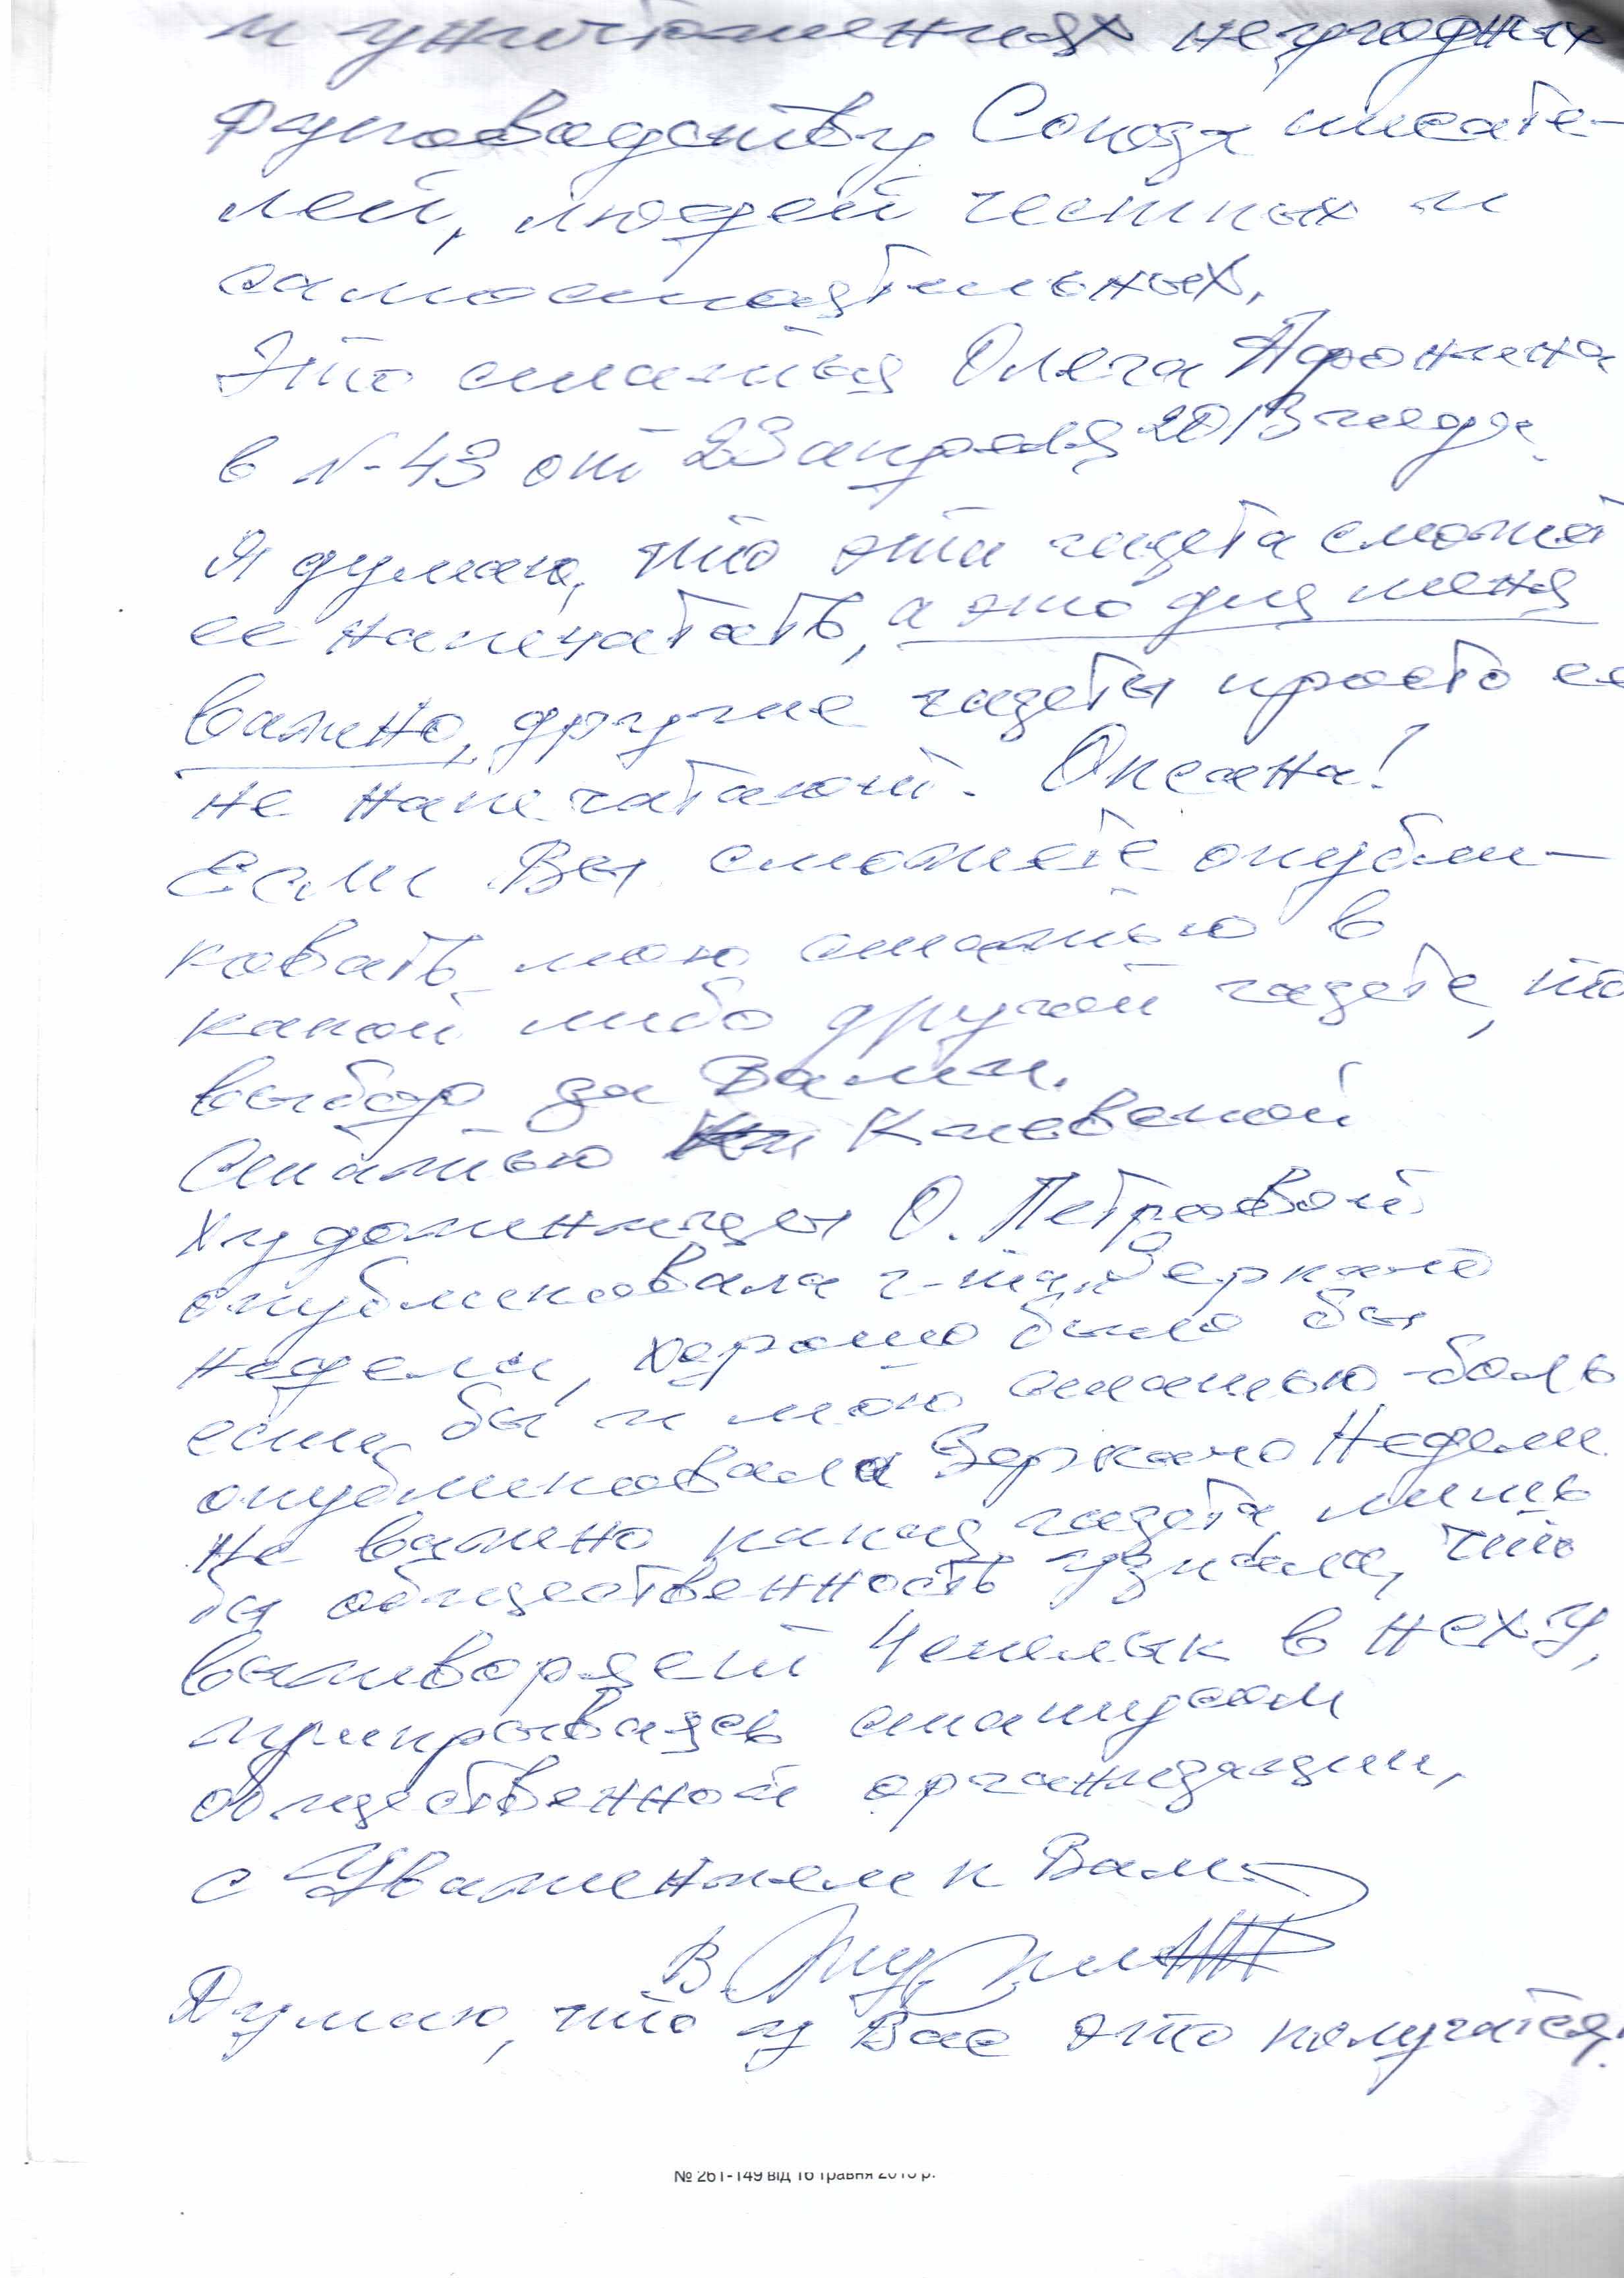 и уничтожениях неугодных
руководству Союза писате-
лей, людей честных и
самостоятельных.
Это статья Олега Афонина
в №43 от 23 апреля 2013 года.
Я думаю, что эта газета сможет
ее напечатать, а это для меня
важно, другие газеты просто ее
не напечатают. Оксана!
Если Вы сможете опубли-
ковать мою статью в
какой либо другой газете, то
выбор за Вами.
Статью Киевской
художницы О. Петровой
опубликовала г-та "Зеркало
недели, хорошо было бы
если бы и мою статью-боль
опубликовала Зеркало Недели.
Не важно какая газета, лишь
бы общественность узнала, что
вытворяет Чепелык в НСХУ,
прикрываясь статусом
общественной организации,
с Уважением к Вам
В.
Думаю, что у Вас это получится.
№ 261-149 від 16 травня р.